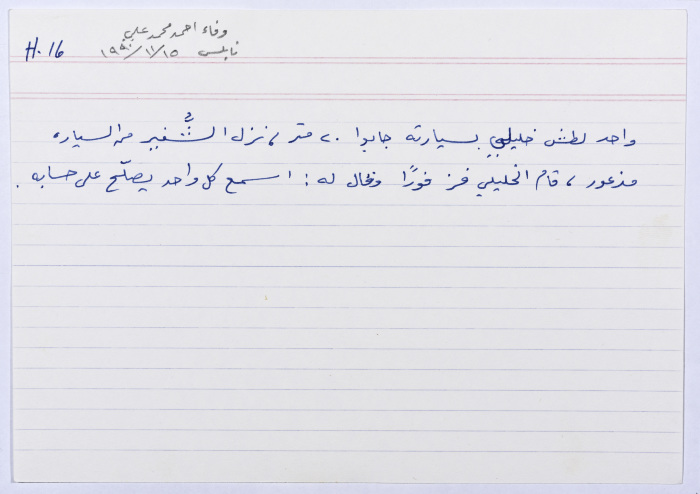 وفاء احمد محمد علي
H. 16
نابلس ١٩٩٠/١١/١٥
واحد لطش خليلي بسيارته جابوا ٢٠ متر، نزل الشُّفير من السياره
مذعور، قام الخليلي فز فورًا وقال له: اسمع كل واحد يصلّح على حسابه.